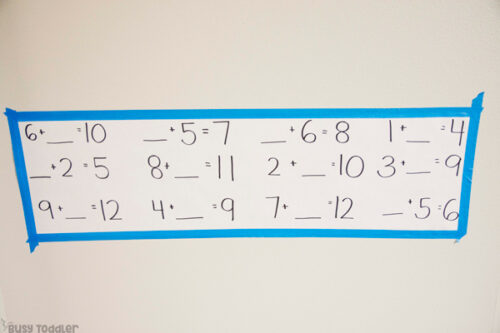 6+__=10 __+5=7 __+6=8 1+__=4
__+2=5 8+__=11 2+__=10 3+__=9
9+__=12 4+__=9 7+__=12 __+5=6
BUSY TODDLER